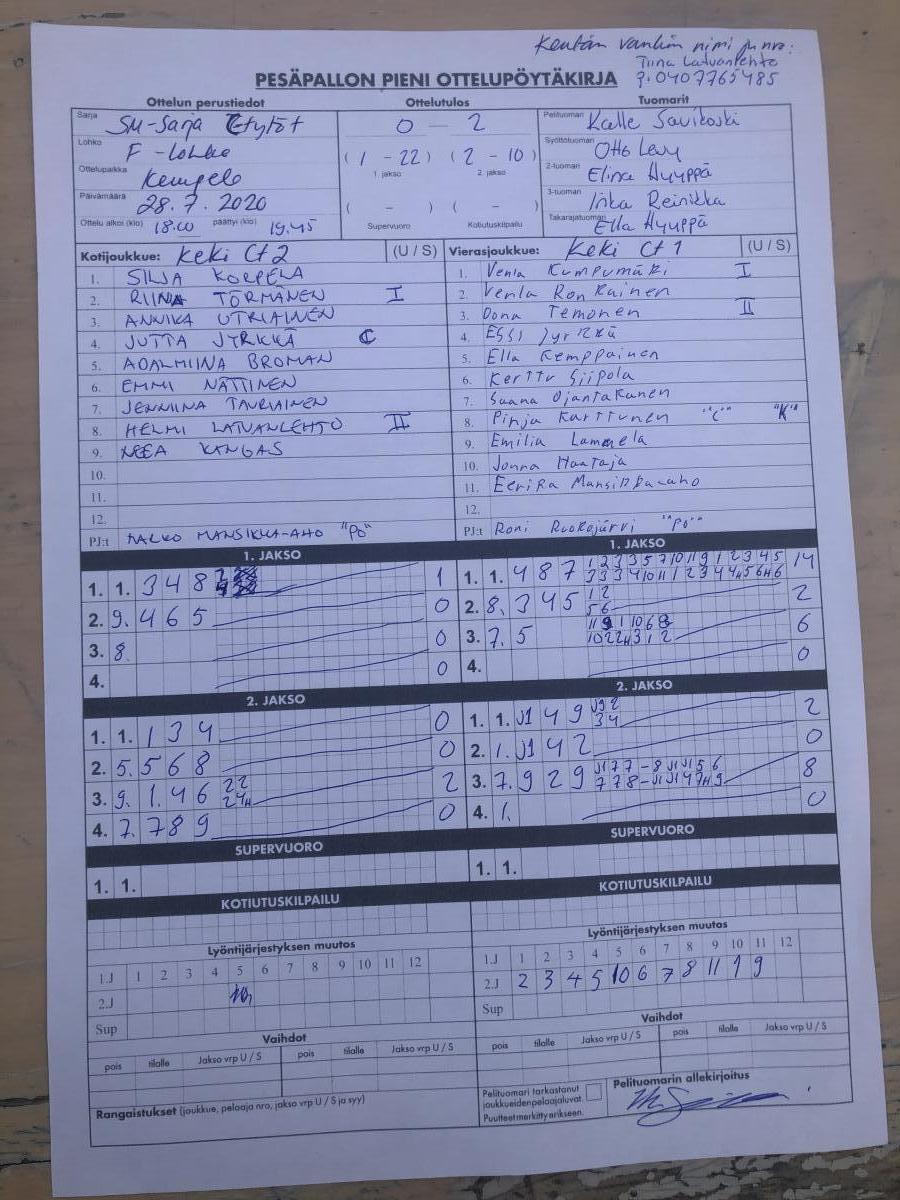 Kentän vanhin nimi ja nro:
Tiina Latvanlehto
P. 0407765485
PESÄPALLON PIENI OTTELUPÖYTÄKIRJA
Ottelun perustiedot Ottelutulos Tuomarit
Sarja SM-Sarja C-tytöt
Lohko F-lohko
Ottelupaikka Kempele
Päivämäärä 28.7.2020
Ottelu alkoi (klo) 18.00 päättyi (klo) 19.45
0 - 2
(1 - 22) (2 - 10)
1. jakso 2. jakso
( - ) ( - )
Supervuoro Kotiutuskilpailu
Pelituomari Kalle Savikoski
Syöttötuomari Otto Levy
2-tuomari Elina Hyyppä
3-tuomari Inka Reinikka
Takarajatuomari Ella Hyyppä
Kotijoukkue: Keki Ct 2 (U / S)
1. SILJA KORPELA
2. RIINA TÖRMÄNEN I
3. ANNIKA UTRIAINEN
4. JUTTA JYRKKÄ C
5. ADALMIINA BROMAN
6. EMMI NÄTTINEN
7. JENNIINA TAURIAINEN
8. HELMI LATVANLEHTO II
9. NEEA KANGAS
10.
11.
12.
PJ:t MANSIKKA-AHO "PO"
Vierasjoukkue: Keki Ct 1 (U / S)
1. Venla Kumpumäki I
2. Venla Ronkainen
3. Oona Temonen II
4. Essi Jyrkkä
5. Ella Kemppainen
6. Kerttu Siipola
7. Saana Ojantakanen
8. Pinja Karttunen "C" "K"
9. Emilia Lammela
10. Jonna Haataja
11. Eerika Mansikka-aho
12.
PJ:t Roni Ruokojärvi "PO"
1. JAKSO
1. 1. 3 4 8 1
2. 9. 4 6 5 0
3. 8. 0
4. 0
1. JAKSO
1. 1. 4 8 7 14
2. 8. 3 4 5 1 2 2
5 6
3. 7. 5 6
4. 0
2. JAKSO
1. 1. 1 3 4 0
2. 5. 5 6 8 0
3. 9. 1. 4 6 2 2 2
2 4H
4. 7. 7 8 9 0
2. JAKSO
1. 1. J1 4 9 J9 2 2
3 4
2. 1. J1 4 2 0
3. 7. 9 2 9 8
4. 1. 0
SUPERVUORO
1. 1.
SUPERVUORO
1. 1.
KOTIUTUSKILPAILU
KOTIUTUSKILPAILU
Lyöntijärjestyksen muutos
1.J 1 2 3 4 5 6 7 8 9 10 11 12
2.J
Sup
Lyöntijärjestyksen muutos
1.J 1 2 3 4 5 6 7 8 9 10 11 12
2.J 2 3 4 5 10 6 7 8 11 1 9
Sup
Vaihdot
pois tilalle Jakso vrp U / S pois tilalle Jakso vrp U / S
Vaihdot
pois tilalle Jakso vrp U / S pois tilalle Jakso vrp U / S
Rangaistukset (joukkue, pelaaja nro, jakso vrp U / S ja syy)
Pelituomari tarkastanut
joukkueiden pelaajaluvat.
Puutteet merkitty erikseen.
Pelituomarin allekirjoitus